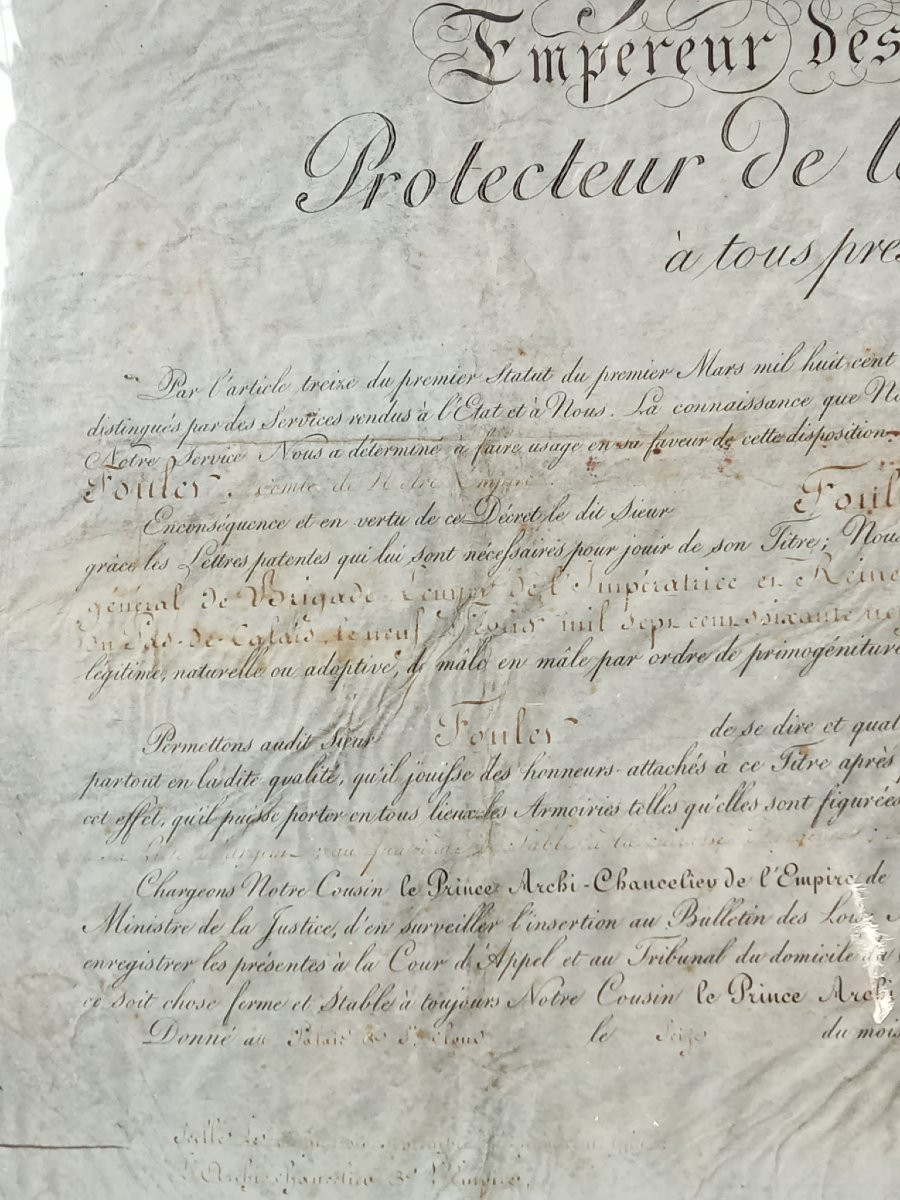 Empereur des
Protecteur de la
à tous pré
Par l'article treize du premier Statut du premier Mars mil huit cent
distingués par des Services rendus à l'Etat et à Nous. La connaissance que No
Notre Service Nous a déterminé à faire usage en sa faveur de cette disposition.
Fouler, comte de Notre Empire.
Enconséquence et en vertu de ce Décret, le dit Sieur Foul
grâce les Lettres patentes qui lui sont nécessaires pour jouir de son Titre; Nous
général de Brigade, Ecuyer de l'Impératrice et Reine
du Pas-de-Calais, le neuf mil sept cent soixante ne
légitime, naturelle ou adoptive, de mâle en mâle par ordre de primogéniture
Permettons audit Sieur Fouler de se dire et qual
partout en ladite qualité, qu'il jouisse des honneurs attachés à ce Titre après
cet effet, qu'il puisse porter en tous lieux les Armoiries telles qu'elles sont figurées
au de sable à la
Chargeons Notre Cousin le Prince Archi-Chancelier de l'Empire de
Ministre de la Justice, d'en surveiller l'insertion au Bulletin des Lois
enregistrer les présentes à la Cour d'Appel et au Tribunal du domicile du
ce soit chose ferme et Stable à toujours Notre Cousin le Prince Archi
Donné au Palais de St. Cloud le Seize du mois
Scellé le
l'Archi-chancelier de l'Empire.